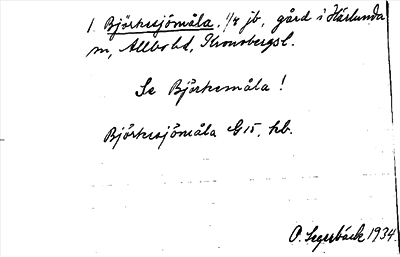 1. Björkesjömåla, 1/4 jb, gård i Härlunda
sn, Allbo hd, Kronobergs l.
Se Björkemåla!
Björkesjömåla G15, hb.
O. Segerbäck 1934.